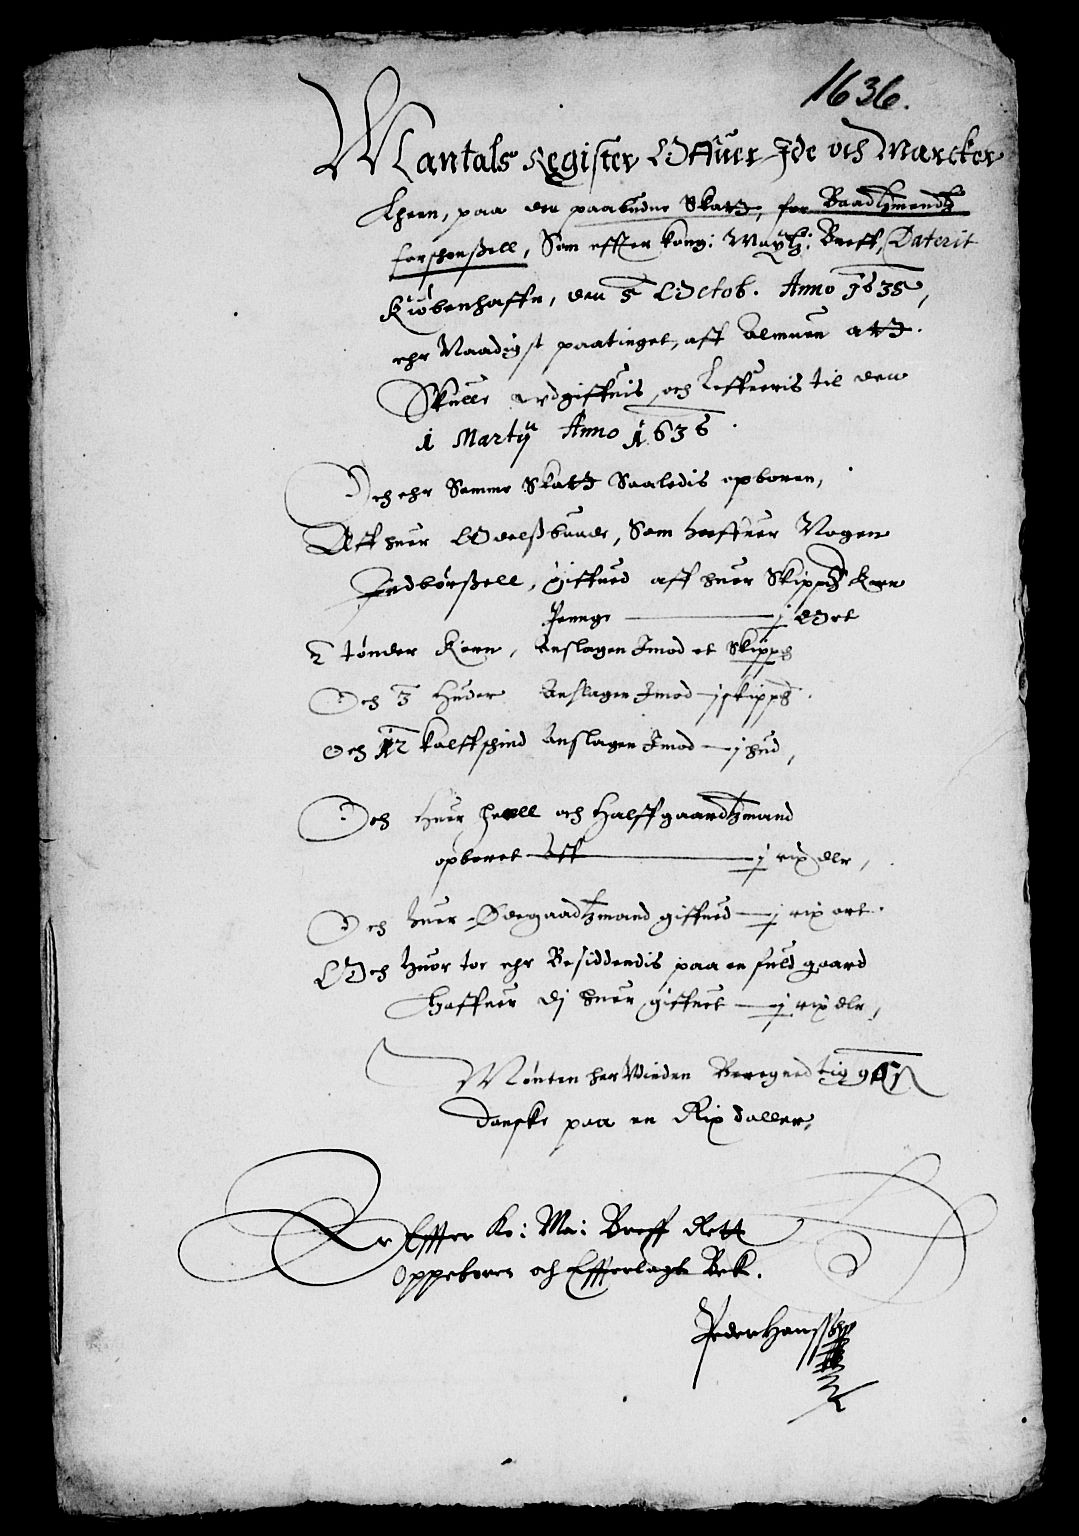 1636.
Mantals Register Offuer Ide och Marcker
Sheen, paa den paabudne Skatt, for Baadtzmendtz
forschonßell, Som effter kong: Maytz: Breff, Daterit
Kiøbenhaffn, den 5 Octob. Anno 1635,
ehr Naadigst paatinget, aff Almuen att
Skulle udgiffuis, och leffueris til den
1 Martij Anno 1636.
Och ehr Samme Skatt Saaledis opboren,
Aff huer Odelsbunde, Som haffuer Nogen
Indbørßell, giffued aff huer Skippd Korn
Penge j Ort
2 tønder Korn, Anslagen Imod et Skippd
Och 3 Huder Anslagen Imod j skippd.
Och 12 kalffschind Anslagen Imod j hud,
Och Huer heell och Halffgaardtzmand
opboret Aff j rix dlr,
Och huer Ødegaardtzmand giffued j rix ort.
Och huor toe ehr Besiddendis paa en fuld gaard
Haffuer dj huer giffuet j rix dlr,
Mønten her Vinden Beregned tig
danske paa en Rix daller,
Er Effter Ko: Ma: Breff Rett
Oppeboren och Efferlagt Bek.
Peder Hanssøn